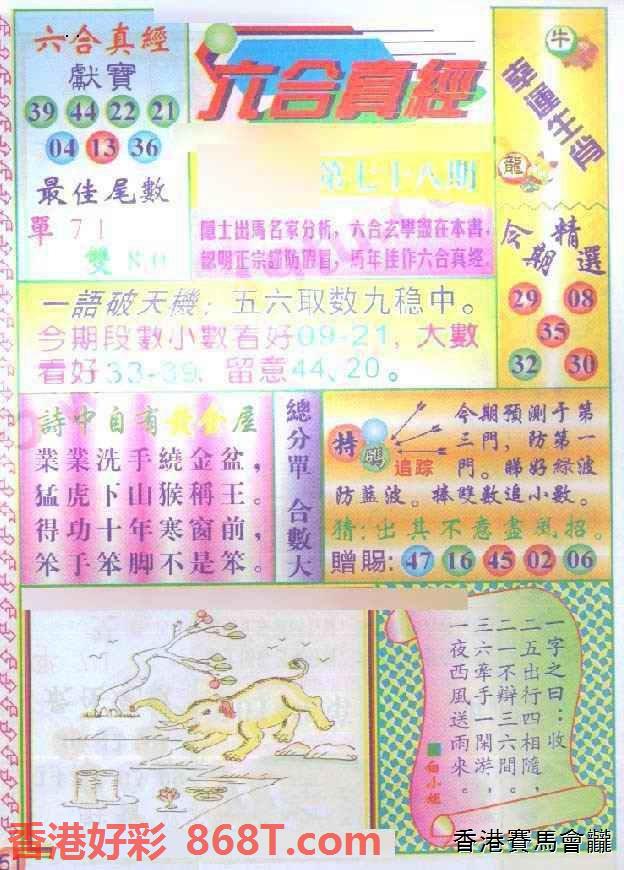 六合真經
獻寶
39 44 22 21
04 13 36
最佳尾數
單 7 1
雙 8.0
六合真經
第七十八期
隱士出馬名家分析,六合玄學盡在本書,
認明正宗謹防假冒,馬年佳作六合真經.
牛
幸運生肖
龍
今期精選
29 08
35
32 30
一語破天機:五六取数九稳中。
今期段數小數看好09-21,大數
看好33-39、留意44、20。
詩中自有黃金屋
業業洗手繞金盆,
猛虎下山猴稱王。
得功十年寒窗前,
笨手笨脚不是笨。
總分單 合數大
特碼
追踪
今期預測于第
三門,防第一
門。睇好綠波
防藍波。捧雙數追小數。
猜:出其不意盡氣招。
贈賜:47 16 45 02 06
一字之曰:收
二五出行四相隨,
二一不辦三六間,
三六牽手一閑游,
一夜西風送雨來。
白小姐
香港好彩 868T.com
香港賽馬會